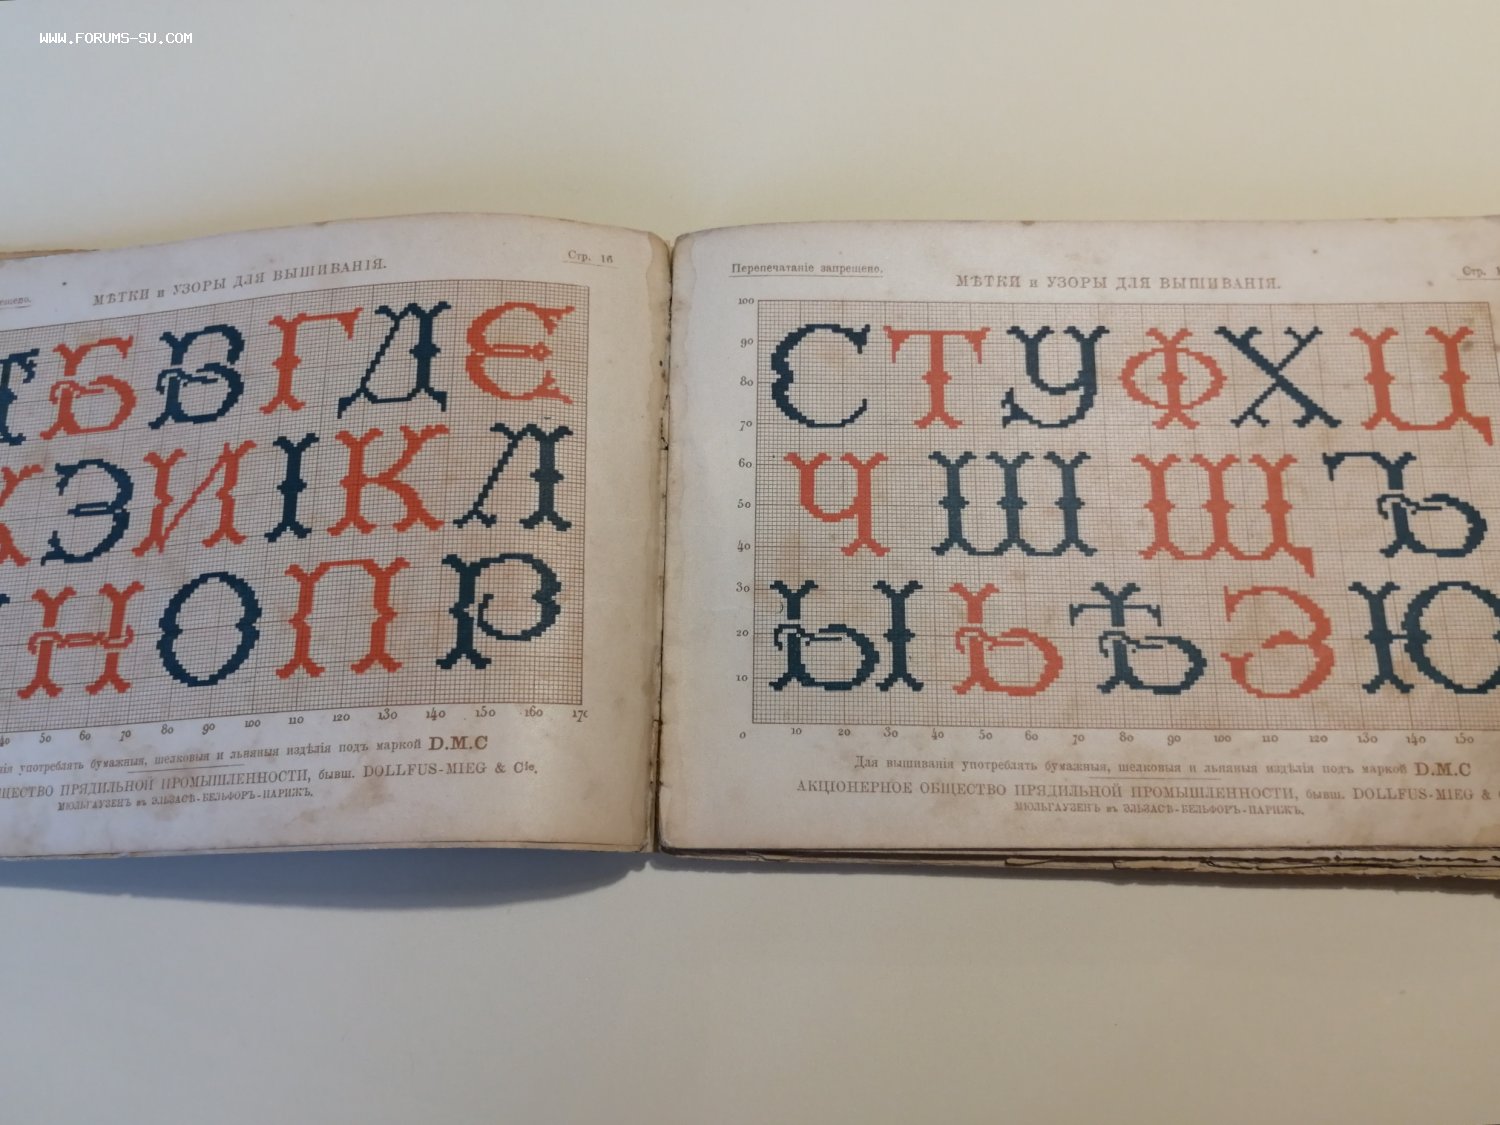 WWW.FORUMS-SU.COM
МѢТКИ и УЗОРЫ ДЛЯ ВЫШИВАНІЯ.
Стр. 16
Б В Г Д Е
З И І К Л
Н О П Р
40 50 60 70 80 90 100 110 120 130 140 150 160 170
употреблять бумажныя, шелковыя и льняныя издѣлія подъ маркой D.M.C
ПРЯДИЛЬНОЙ ПРОМЫШЛЕННОСТИ, бывш. DOLLFUS-MIEG & Cie.
МЮЛЬГАУЗЕНЪ въ ЭЛЬЗАСѢ-БЕЛЬФОРЪ-ПАРИЖЪ.
Перепечатаніе запрещено.
МѢТКИ и УЗОРЫ ДЛЯ ВЫШИВАНІЯ.
Стр.
100
90
80
70
60
50
40
30
20
10
С Т У Ф Х Ц
Ч Ш Щ Ъ
Ы Ь Ѣ Э Ю
0 10 20 30 40 50 60 70 80 90 100 110 120 130 140 150
Для вышиванія употреблять бумажныя, шелковыя и льняныя издѣлія подъ маркой D.M.C
АКЦІОНЕРНОЕ ОБЩЕСТВО ПРЯДИЛЬНОЙ ПРОМЫШЛЕННОСТИ, бывш. DOLLFUS-MIEG &
МЮЛЬГАУЗЕНЪ въ ЭЛЬЗАСѢ-БЕЛЬФОРЪ-ПАРИЖЪ.